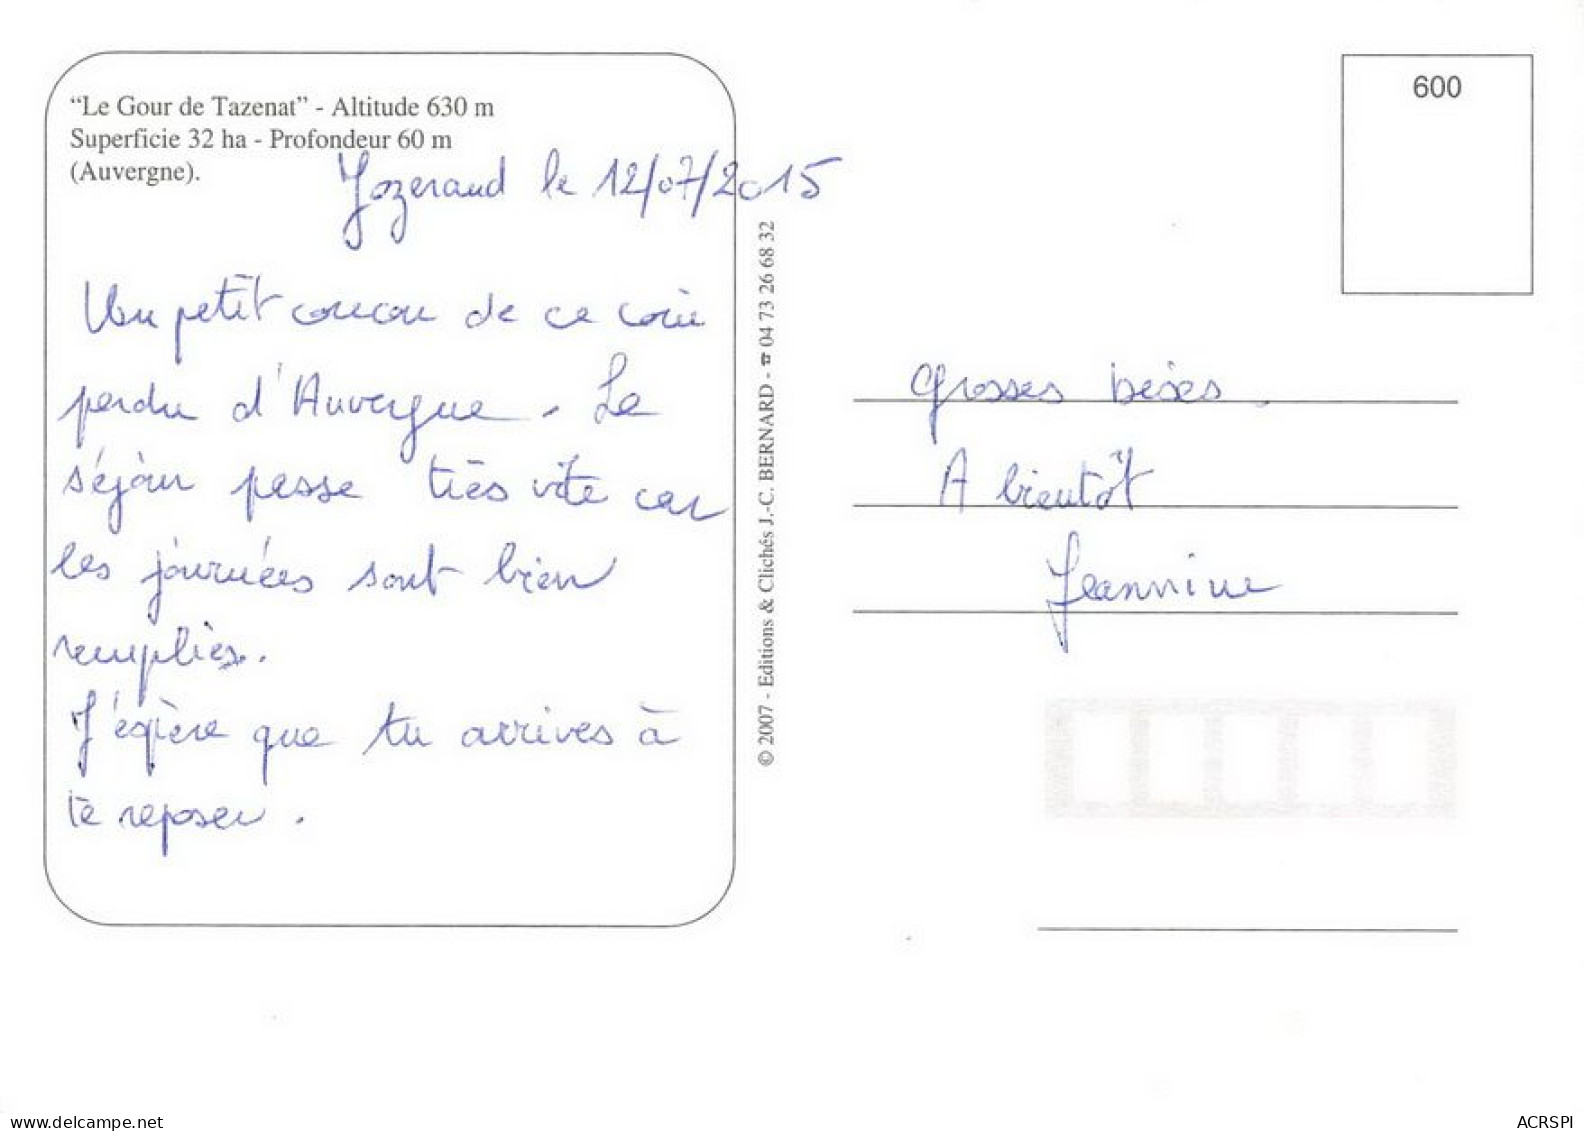 “Le Gour de Tazenat” - Altitude 630 m
Superficie 32 ha - Profondeur 60 m
(Auvergne).
Jozerand le 12/07/2015
Un petit coucou de ce coin
perdu d'Auvergne. Le
séjour passe très vite car
les journées sont bien
remplies.
J'espère que tu arrives à
te reposer.
© 2007 - Editions & Clichés J.-C. BERNARD - ☎ 04 73 26 68 32
600
Grosses bises.
A bientôt
Jeannine
www.delcampe.net
ACRSPI